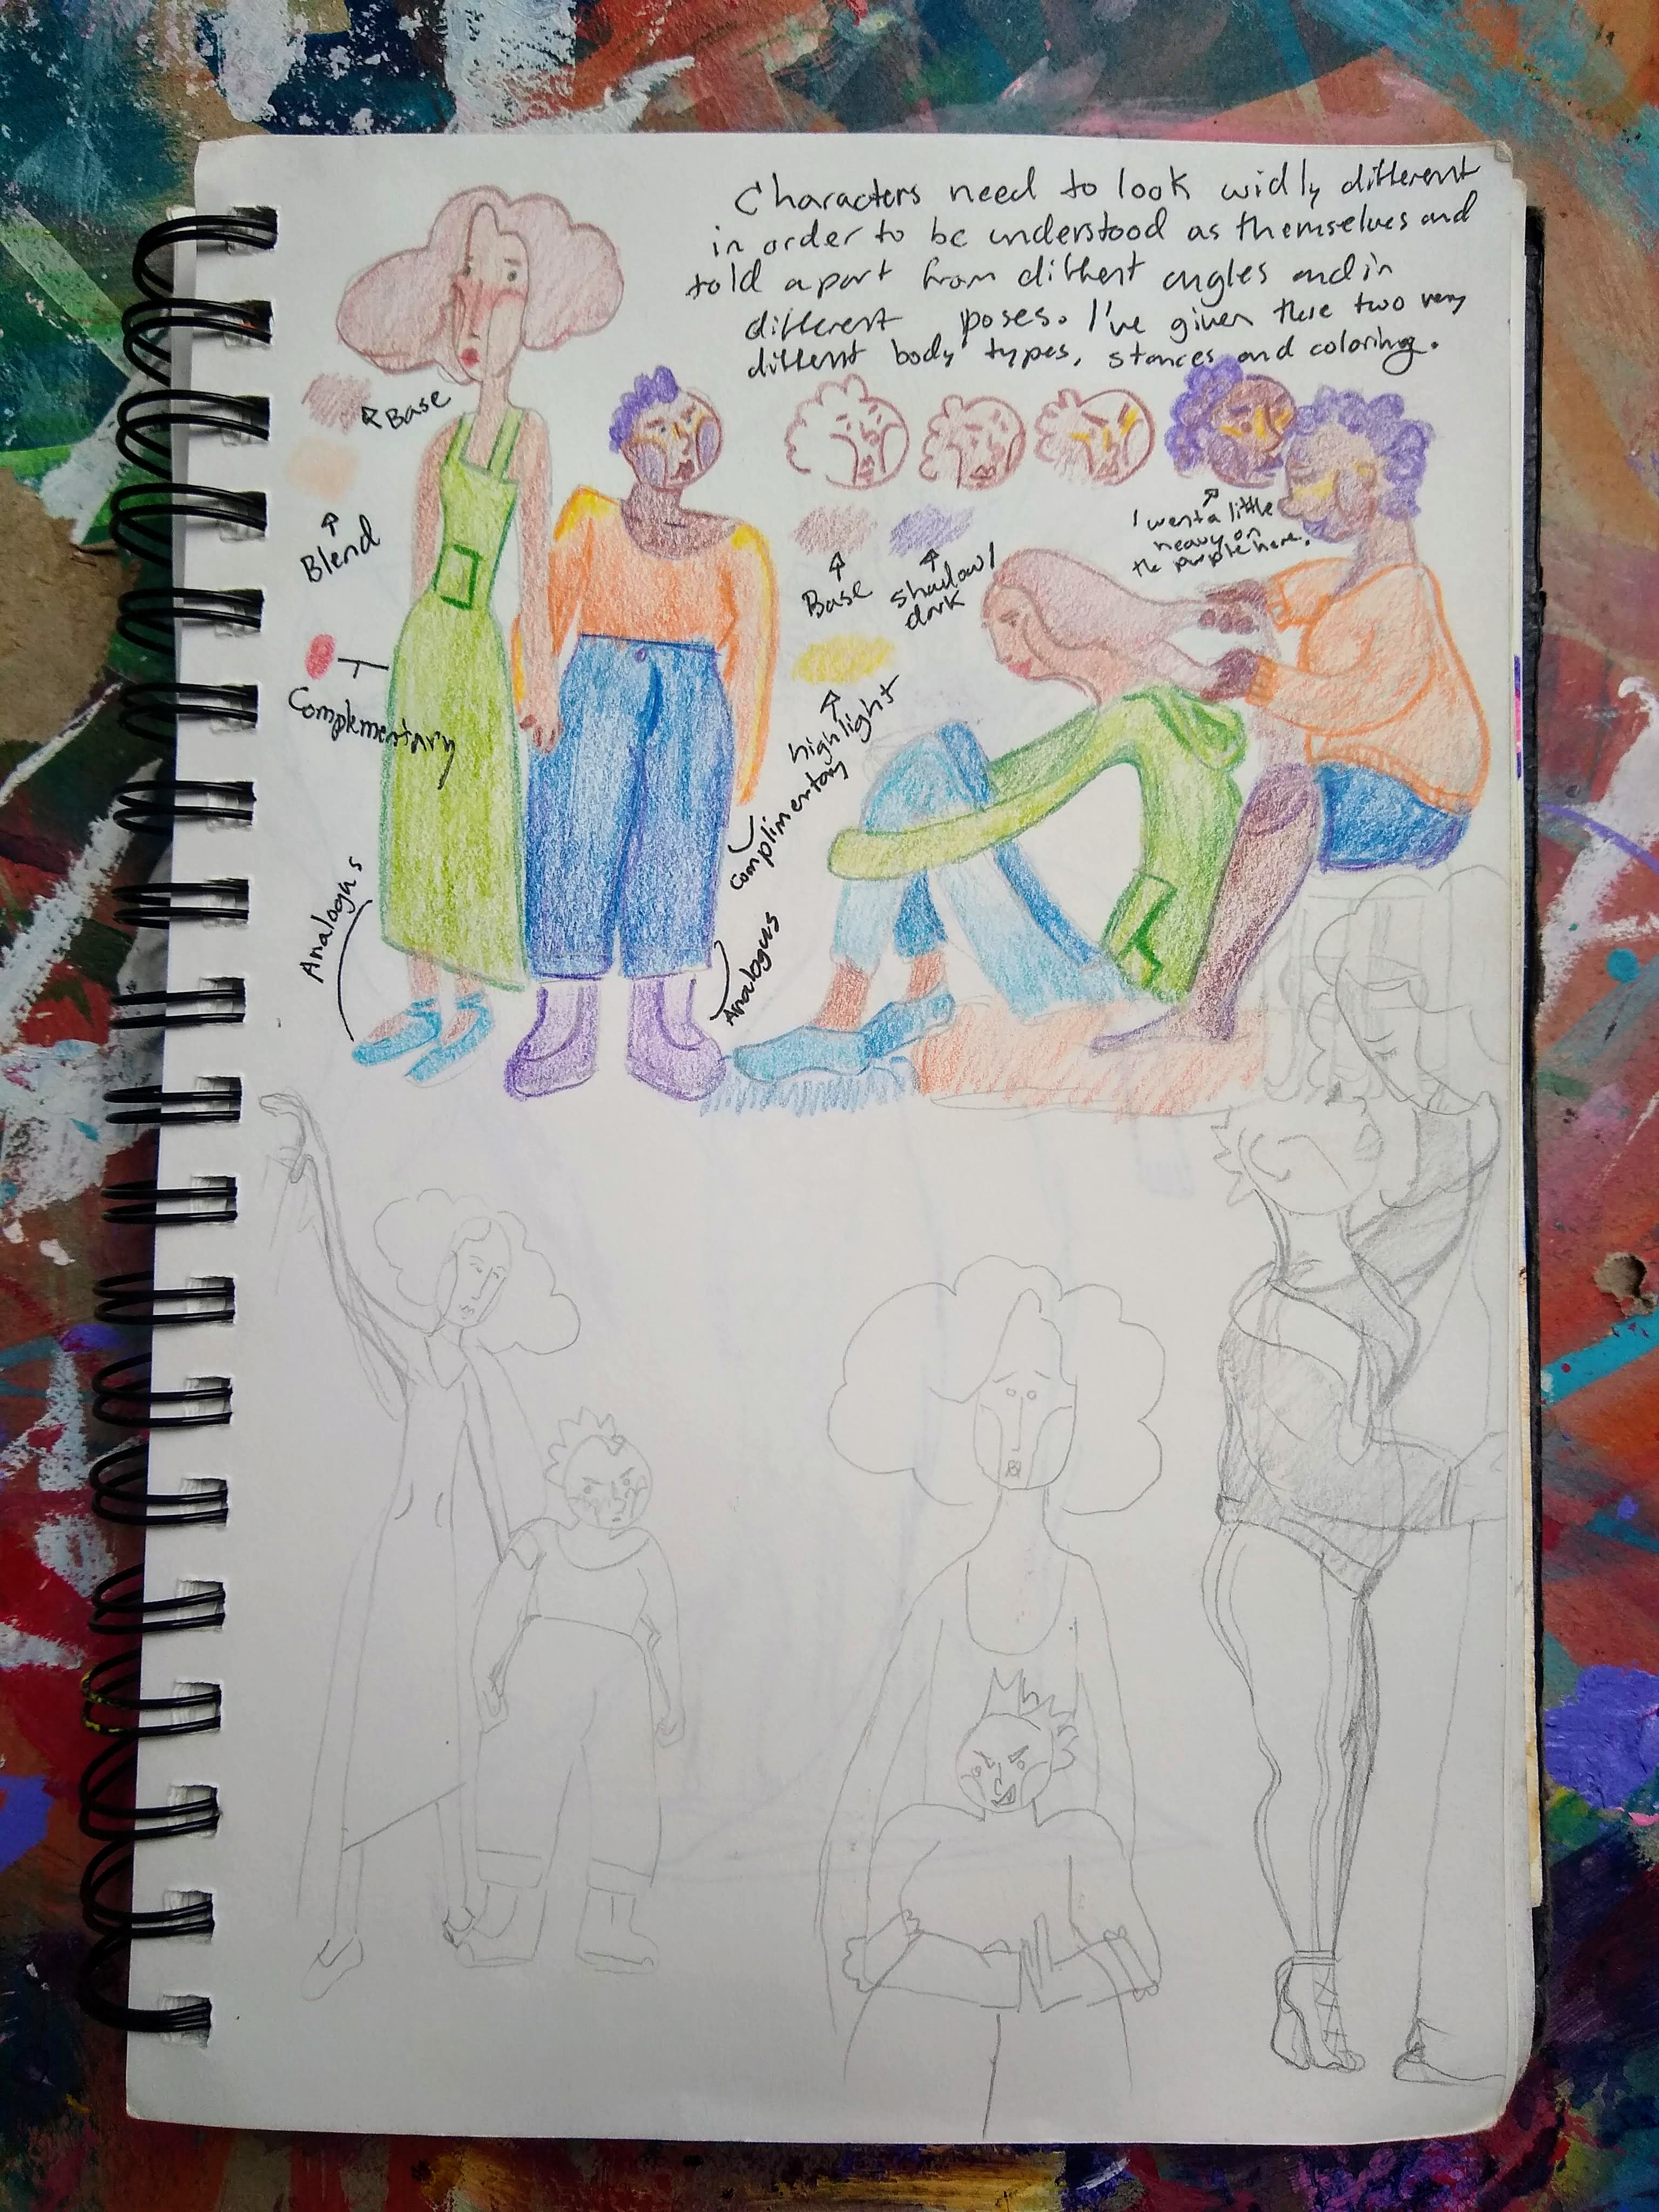 Characters need to look widly different
in order to be understood as themselves and
told apart from diffrent angles and in
different poses. I've given these two very
diffrent body types, stances and coloring.
Base
Blend
Complementary
Analogus
Base
shadow/
dark
highlight
complimentary
Complimentary
Analogus
I went a little
heavy on
the purple here.